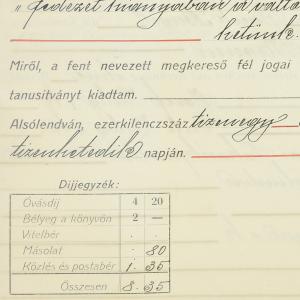 „fedezet hiányában a válto
hetünk.
Miről, a fent nevezett megkereső fél jogai
tanusitványt kiadtam.
Alsólendván, ezerkilenczszáz tizenegy
tizenhetedik napján.
Díjjegyzék:
Óvásdíj 4 20
Bélyeg a könyvön 2 —
Vitelbér . .
Másolat . 80
Közlés és postabér 1. 35
Összesen 8. 35